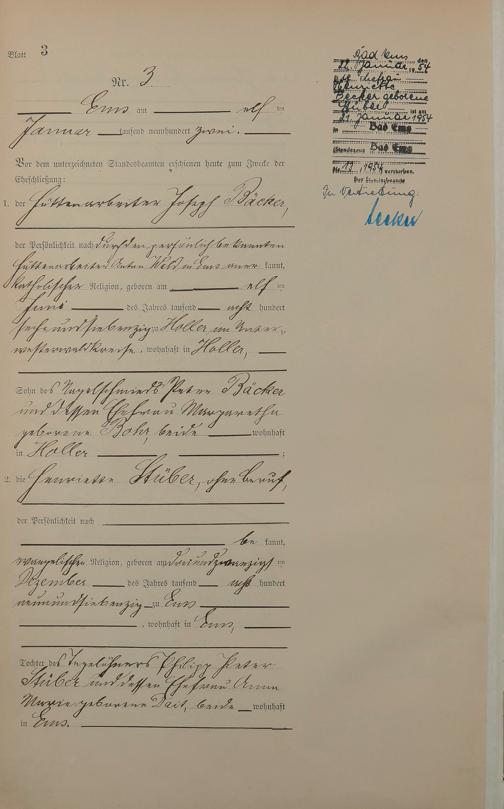 Blatt 3
Nr. 3
Ems am elf ten
Januar tausend neunhundert zwei.
Vor dem unterzeichneten Standesbeamten erschienen heute zum Zwecke der
Eheschließung:
1. der Hüttenarbeiter Joseph Bäcker,
der Persönlichkeit nach durch den persönlich bekannten
Hüttenarbeiter Anton in Ems aner kannt,
katholischer Religion, geboren am elf ten
Juni des Jahres tausend acht hundert
sechsundsiebenzig zu Holler im Unter-
westerwaldkreise, wohnhaft in Holler,
Sohn des Nagelschmieds Peter Bäcker
und dessen Ehefrau Margaretha
geborene Bohr, beide wohnhaft
in Holler ;
2. die Henriette Stüber, ohne Beruf,
der Persönlichkeit nach
be kannt,
evangelischer Religion, geboren am dreiundzwanzigst en
Dezember des Jahres tausend acht hundert
neunundsiebenzig zu Ems
, wohnhaft in Ems,
Tochter des Tagelöhners Philipp Peter
Stüber und dessen Ehefrau Anna
Maria geborene beide wohnhaft
in Ems.
Bad Ems, den
22. Januar 1954
Die Ehefrau
Henriette
Becker geborene
Stüber
ist am
21. Januar 1954
in Bad Ems
(Standesamt Bad Ems
Nr. 17/1954 verstorben.
Der Standesbeamte
In Vertretung
Becker